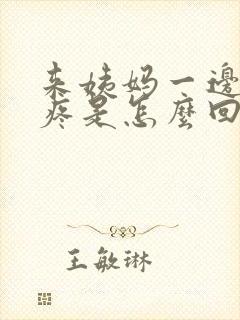 来姨妈一邊
疼是怎麼回
王敏琳